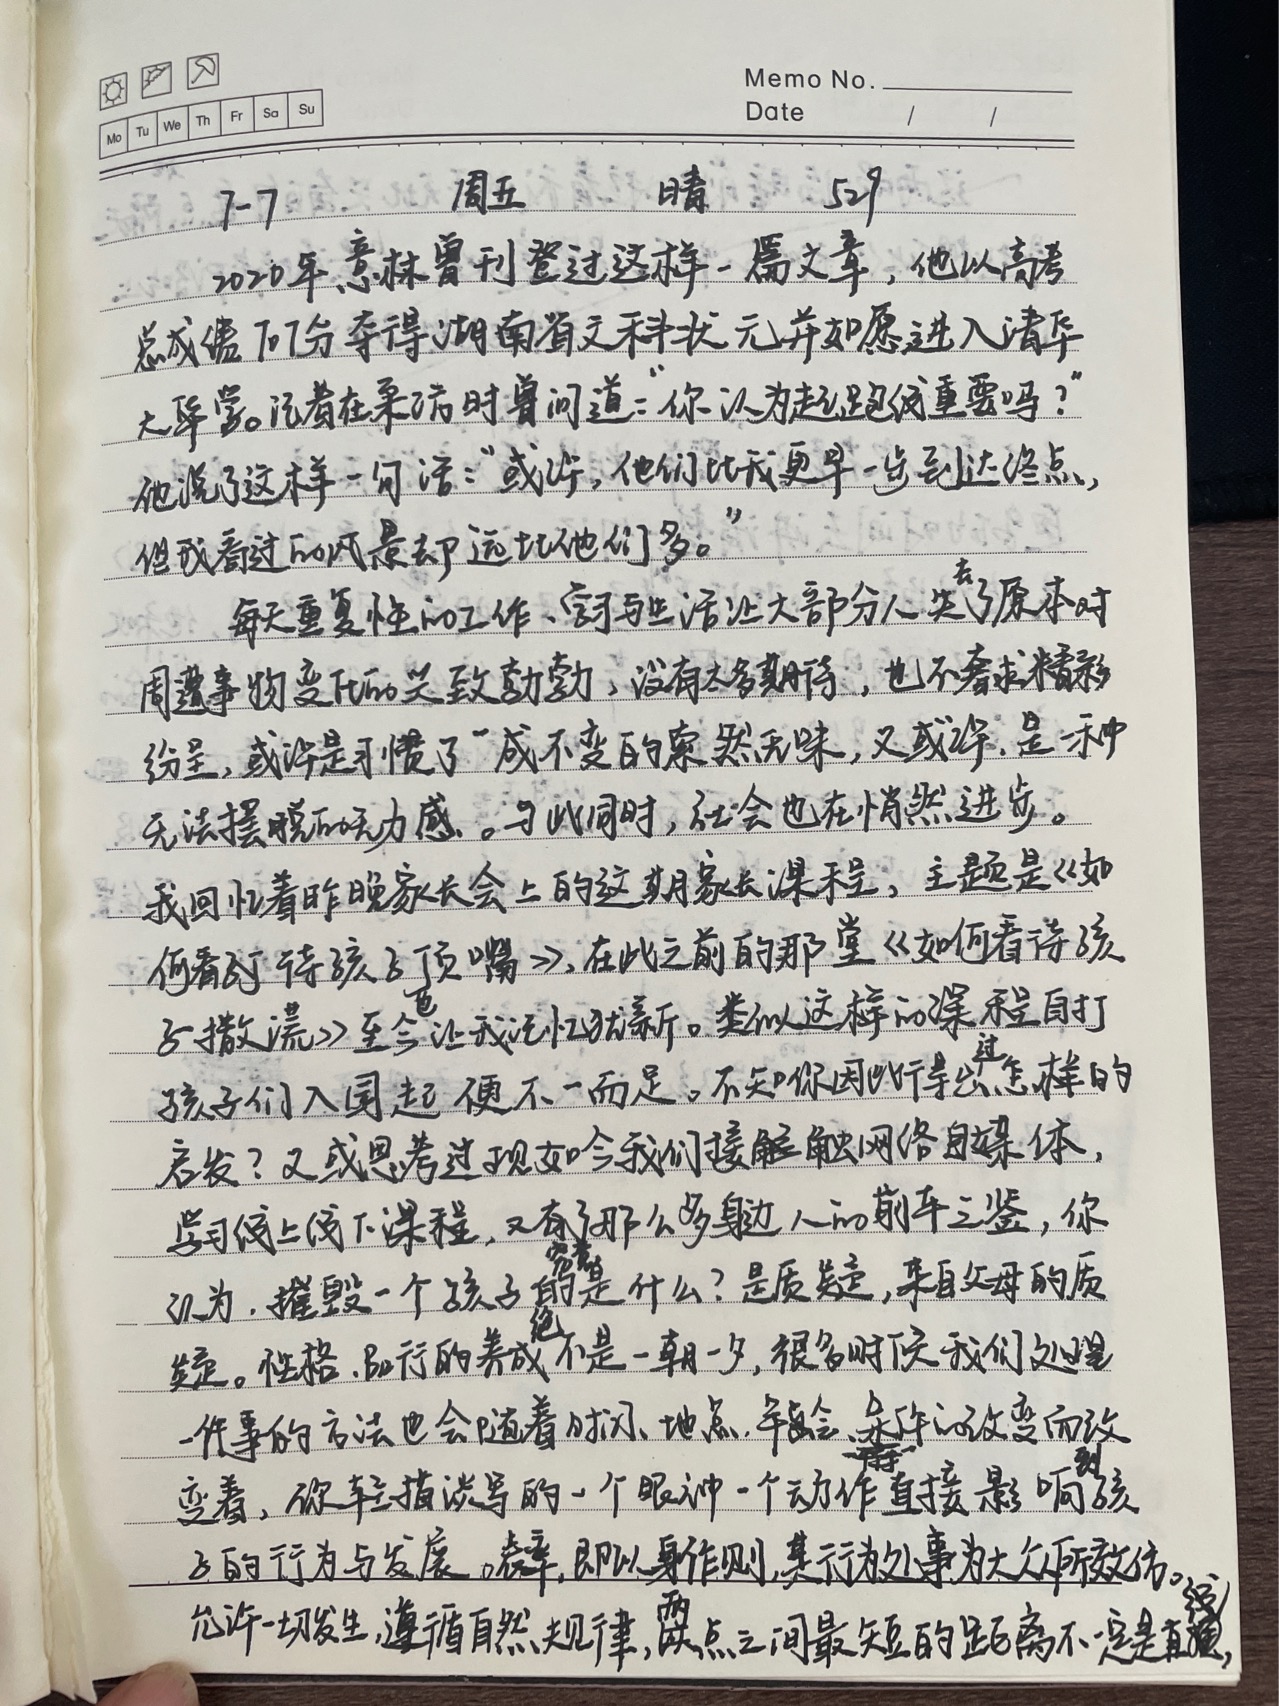 Memo No.
Date / /
Mo Tu We Th Fr Sa Su
7-7 周五 晴 529
2020年意林曾刊登过这样一篇文章，他以高考
总成绩707分夺得湖南省文科状元并如愿进入清华
大学。记者在采访时曾问道：“你认为起跑线重要吗？”
他说了这样一句话：“或许，他们比我更早一步到达终点，
但我看过的风景却远比他们多。”
每天重复性的工作、学习与生活让大部分人失去了原本对
周遭事物变化的兴致勃勃，没有太多期待，也不奢求精彩
纷呈，或许是习惯了一成不变的索然无味，又或许，是一种
无法摆脱的无力感。与此同时，社会也在悄然进步。
我回忆着昨晚家长会上的这期家长课程，主题是《如
何看待孩子顶嘴》，在此之前的那堂《如何看待孩
子撒谎》至今也让我记忆犹新。类似这样的课程自打
孩子们入园起便不一而足。不知你因此得出过怎样的
启发？又或思考过现如今我们接触网络自媒体，
学习线上线下课程，又有了那么多身边人的前车之鉴，你
认为，摧毁一个孩子的究竟是什么？是质疑，来自父母的质
疑。性格、品行的养成绝不是一朝一夕，很多时候我们处理
一件事的方法也会随着时间、地点、年龄、条件的改变而改
变着，你轻描淡写的一个眼神一个动作直接影响到孩
子的行为与发展。表率，即以身作则，其行为处事为大众所效仿。
允许一切发生，遵循自然规律，两点之间最短的距离不一定是直线，